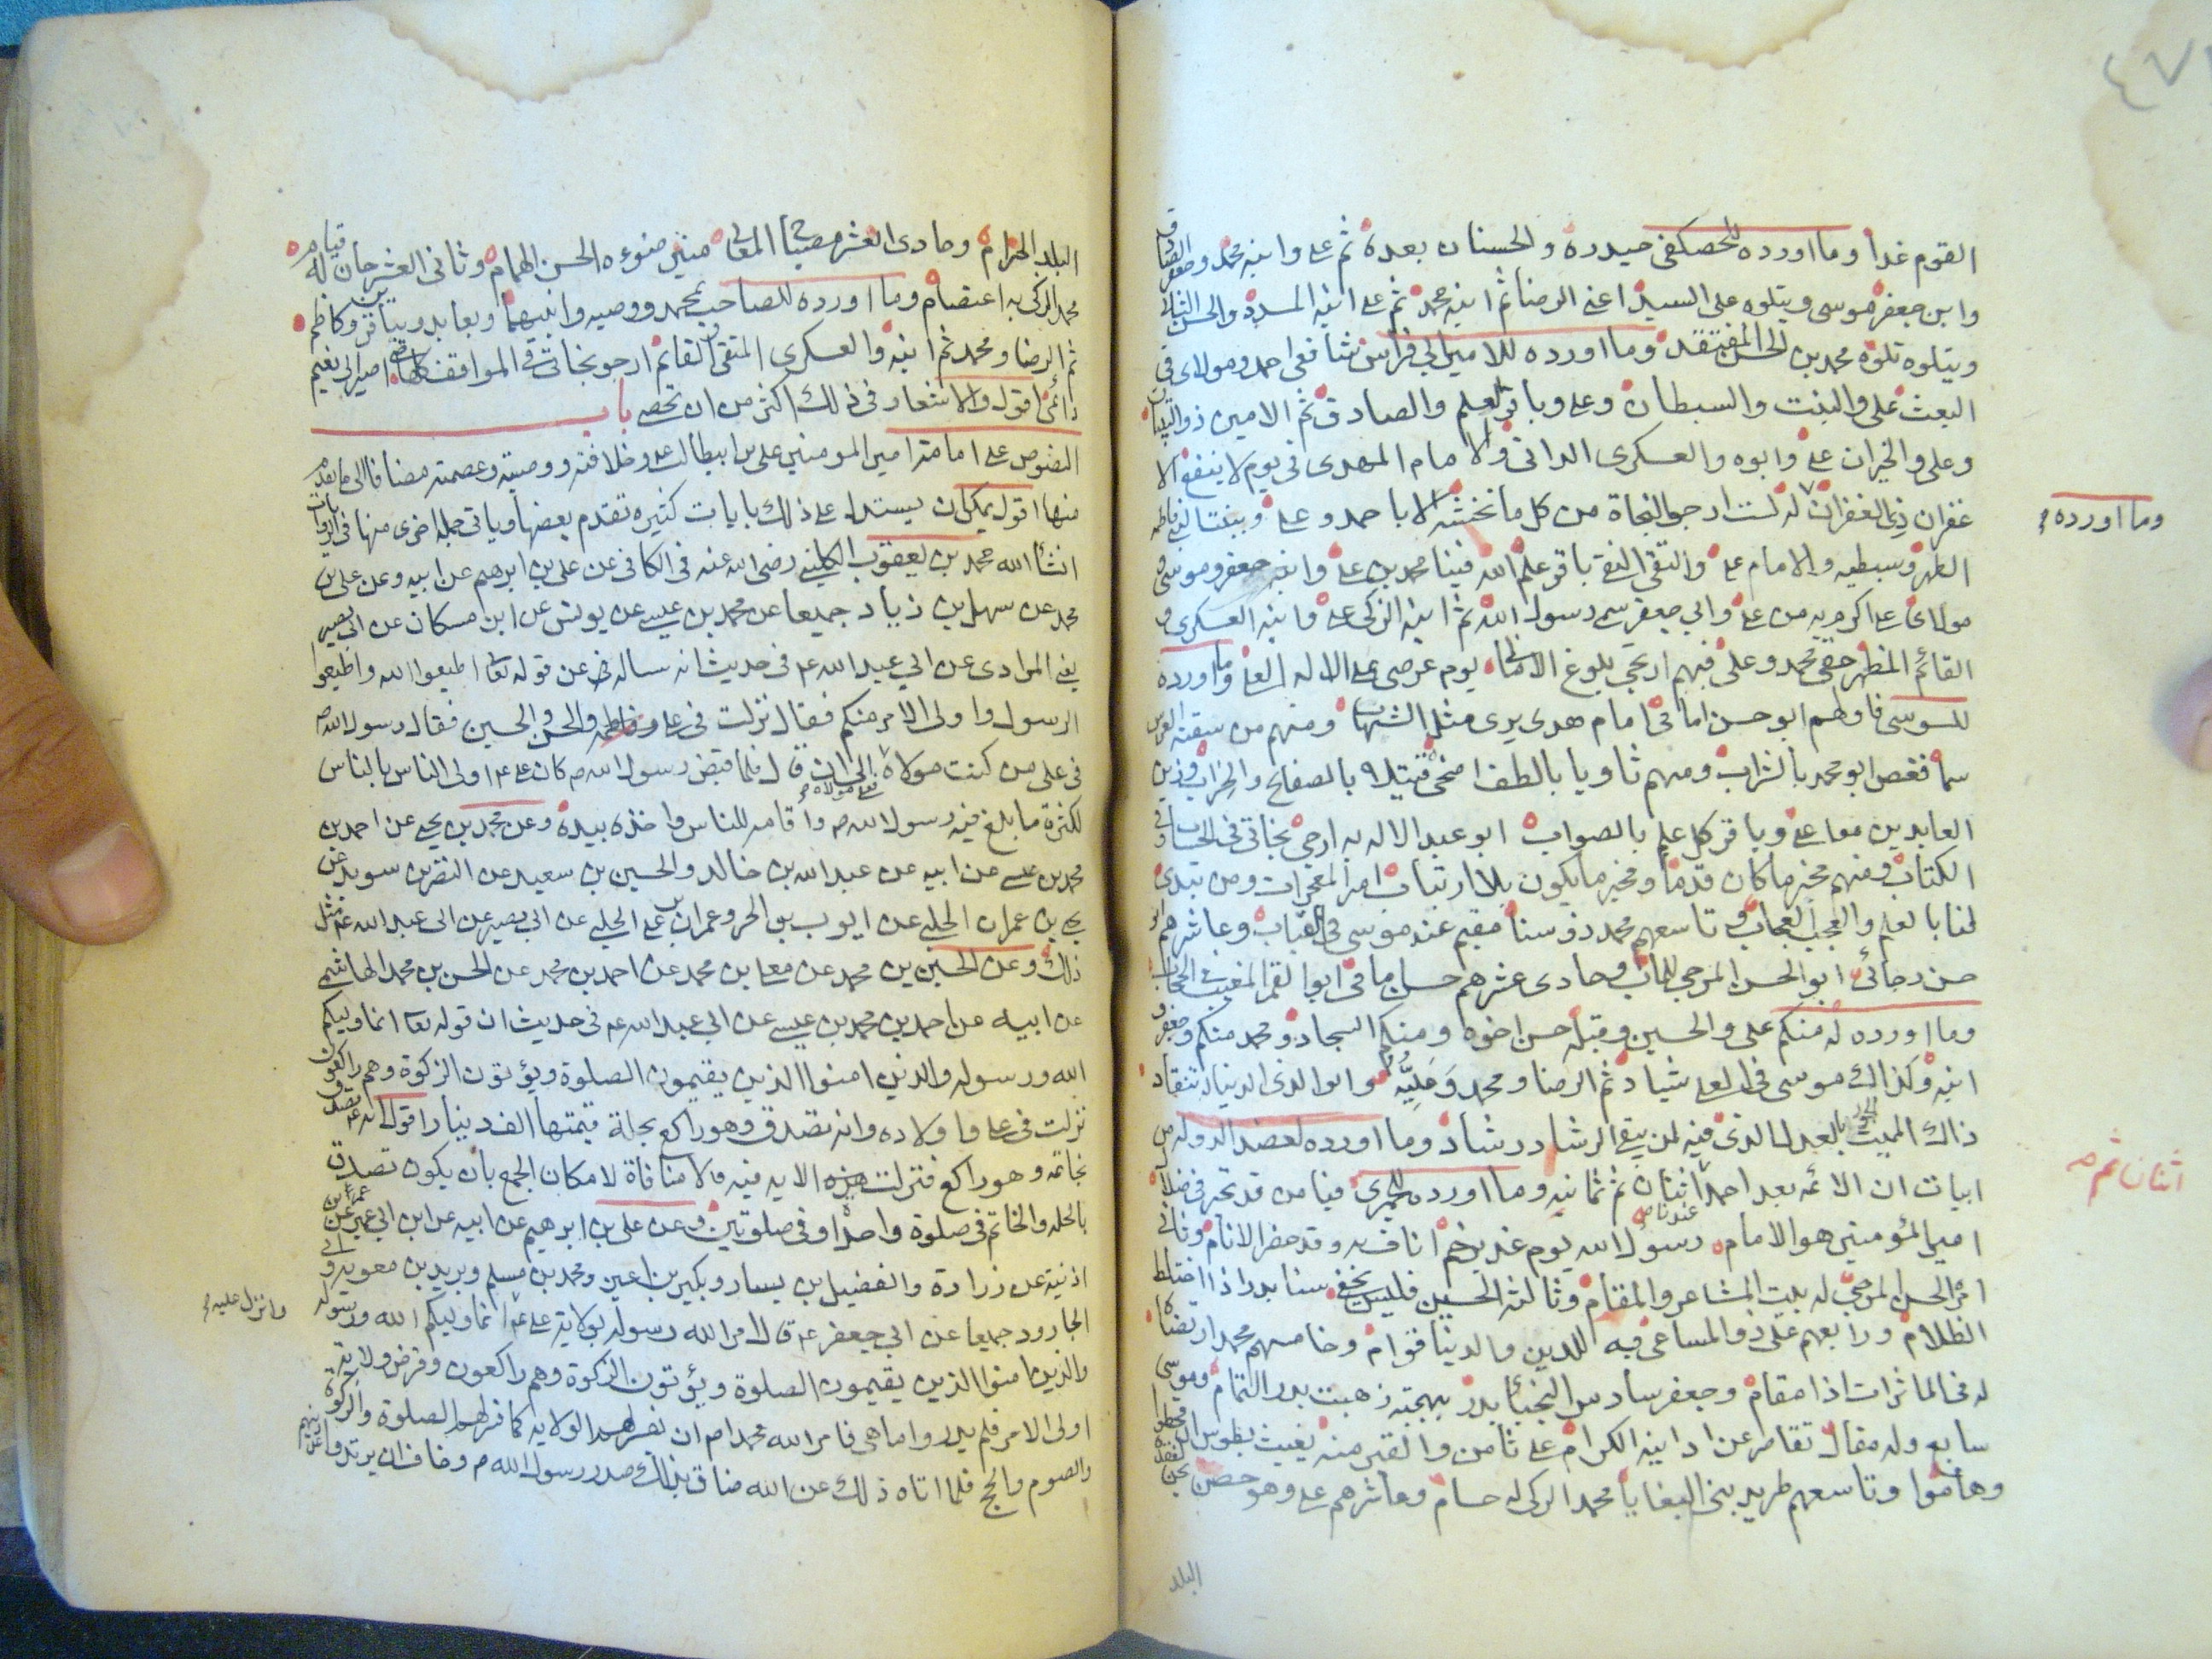 القوم غدا وما اورده للحصكفى حيدرة والحسنان بعده ثم على وابنه محمد وجعفر الصادق
وابن جعفر موسى ويتلوه على السيد اعنى الرضا ثم ابنه محمد ثم على ابنه المسدد والحسن التالى
ويتلوه تلوه محمد بن الحسن المفتقد وما اورده للامير ابى فراس شافعى احمد ومولاى فى
البعث على والبنت والسبطان وعلى وباقر العلم والصادق ثم الامين ذو التبيان
وعلى والخيران على وابوه والعسكرى الدانى والامام المهدى فى يوم لا ينفع الا
غفران ذى الغفران له لست ارجو النجاة من كل ما نخشه الا باحمد وعلى وببنت النبى فاطمة
الطهر وسبطيه والامام على والتقى النقى باقر علم الله فينا محمد بن على وابنه جعفر وموسى
مولاى على اكرم به من على وابى جعفر سمى رسول الله ثم ابنه الزكى على وابنه العسكرى
القائم المظهر حقى محمد وعلى فبهم ارتجى بلوغ الامانى يوم عرضى على الاله العلى وما اورده
للسوسى فاولهم ابو حسن امامى امام هدى يرى مثل الشهاب ومنهم من سقته العرس
سما فغص ابو محمد بالشراب ومنهم ثاويا بالطف اضحى قتيلا بالصفايح والحراب وزين
العابدين معا على وباقر كل علم بالصواب ابو عبد الاله به ارجى نجاتى فى الحساب
الكتاب ومنهم مخبر ما كان قدما ومخبر ما يكون بلا ارتياب امر المعجزات ومن تبدى
لنا بالعلم والعجب العجاب وتاسعهم محمد ذو سنا مقيم عند موسى فى القباب وعاشرهم
من رجائى ابو الحسن المرجى للمآب وحادى عشرهم حسن امامى ابو القمر المغيب فى الحجاب
وما اورده له منكم على والحسين وقبله حسن اخوه ومنكم السجاد ومحمد منكم وجعفر
ابنه وكذاك موسى فى العلى شياد ثم الرضا ومحمد وعليه وابو الذى الدنيا له تنقاد
ذاك المميت الجور بالعدل الذى فيه لمن يبقى الرشاد رشاد وما اورده لعضد الدوله من
ابيات ان الائمه بعد احمد عندنا اثنان ثم ثمانيه وما اورده للحميرى فيا من قد تحير فى ضلال
امير المؤمنين هو الامام رسول الله يوم غدير خم اناف به وقد حضر الانام وثانى
امره الحسن المرجى له بيت المشاعر والمقام وثالثه الحسين فليس يخفى سنا بدر اذا اختلط
الظلام ورابعهم على ذو المساعى فيه للدين والدنيا قوام وخامسهم محمد ارتضاه
له فى الماثرات اذا مقام وجعفر سادس النجباء بدر ببهجته زهبت بدر التمام وموسى
سابع وله مقال تقاصر عن ادانيه الكرام على ثامن والقبر منه يغيث بطوس
وهاموا وتاسعهم طريد بنى البغايا محمد الزكى له حسام وعاشرهم على وهو حصن
البلد
وما اورده
اثنان ثم
البلد الحرام وحادى العشر مصباح المعالى منير ضوءه الحسن الهمام وثانى العشر حان له قيام
محمد الزكى به اعتصام وما اورده للصاحب بمحمد ووصيه وابنيهما وبعابد وبباقرين وكاظم
ثم الرضا ومحمد ثم ابنه والعسكرى المتقى والقائم ارجو نجاتى فى المواقف كلها حتى اصير الى نعيم
دائم اقول والاشعار فى ذلك اكثر من ان تحصى باب
النصوص على امامة امير المومنين على بن ابيطالب ع وخلافته ووصيته وعصمته مضافا الى ما تقدم
منها اقول يمكن ان يستدل على ذلك بايات كثيره تقدم بعضها وياتى جمله اخرى منها فى الروايات
انشاء الله محمد بن يعقوب الكلينى رضى الله عنه فى الكافى عن على بن ابرهيم عن ابيه وعن على بن
محمد عن سهل بن زياد جميعا عن محمد بن عيسى عن يونس عن ابن مسكان عن ابى بصير
يعنى المرادى عن ابى عبد الله ع فى حديث انه ساله عن قوله تعا اطيعوا الله واطيعوا
الرسول واولى الامر منكم فقال نزلت فى على والحسن والحسين فقال رسول الله ص
فى على من كنت مولاه فعلى مولاه الى ان قال فلما قبض رسول الله ص كان على ع اولى الناس بالناس
لكثرة ما بلغ فيه رسول الله ص واقامه للناس واخذه بيده وعن محمد بن يحيى عن احمد بن
محمد بن عيسى عن ابيه عن عبد الله بن خالد والحسين بن سعيد عن النضر بن سويد عن
يحيى بن عمران الحلبى عن ايوب بن الحر وعمران بن على الحلبى عن ابى بصير عن ابى عبد الله ع مثل
ذلك وعن الحسين بن محمد عن معلى بن محمد عن احمد بن محمد عن الحسن بن محمد الهاشمى
عن ابيه عن احمد بن محمد بن عيسى عن ابى عبد الله ع فى حديث ان قوله تعا انما وليكم
الله ورسوله والذين امنوا الذين يقيمون الصلوة ويؤتون الزكوة وهم راكعون
نزلت فى على واولاده وانه تصدق وهو راكع بحلة قيمتها الف دينار اقول انه ع تصدق
بخاتمه وهو راكع فنزلت هذه الايه فيه ولا منافاة لامكان الجمع بان يكون تصدق
بالحله والخاتم فى صلوة واحدة او فى صلوتين وعن على بن ابرهيم عن ابيه عن ابن ابى عمير عن عمر بن
اذنية عن زرارة والفضيل بن يسار وبكير بن اعين ومحمد بن مسلم وبريد بن معويه وابى
الجارود جميعا عن ابى جعفر ع قال امر الله رسوله بولاية على ع انما وليكم الله ورسوله
والذين امنوا الذين يقيمون الصلوة ويؤتون الزكوة وهم راكعون وفرض ولاية
اولى الامر فلم يدروا ما هى فامر الله محمدا ص ان يفسر لهم الولايه كما فسر لهم الصلوة والزكوة
والصوم والحج فلما اتاه ذلك عن الله ضاق بذلك صدر رسول الله ص وخاف ان يرتدوا عن دينهم
وانزل عليه